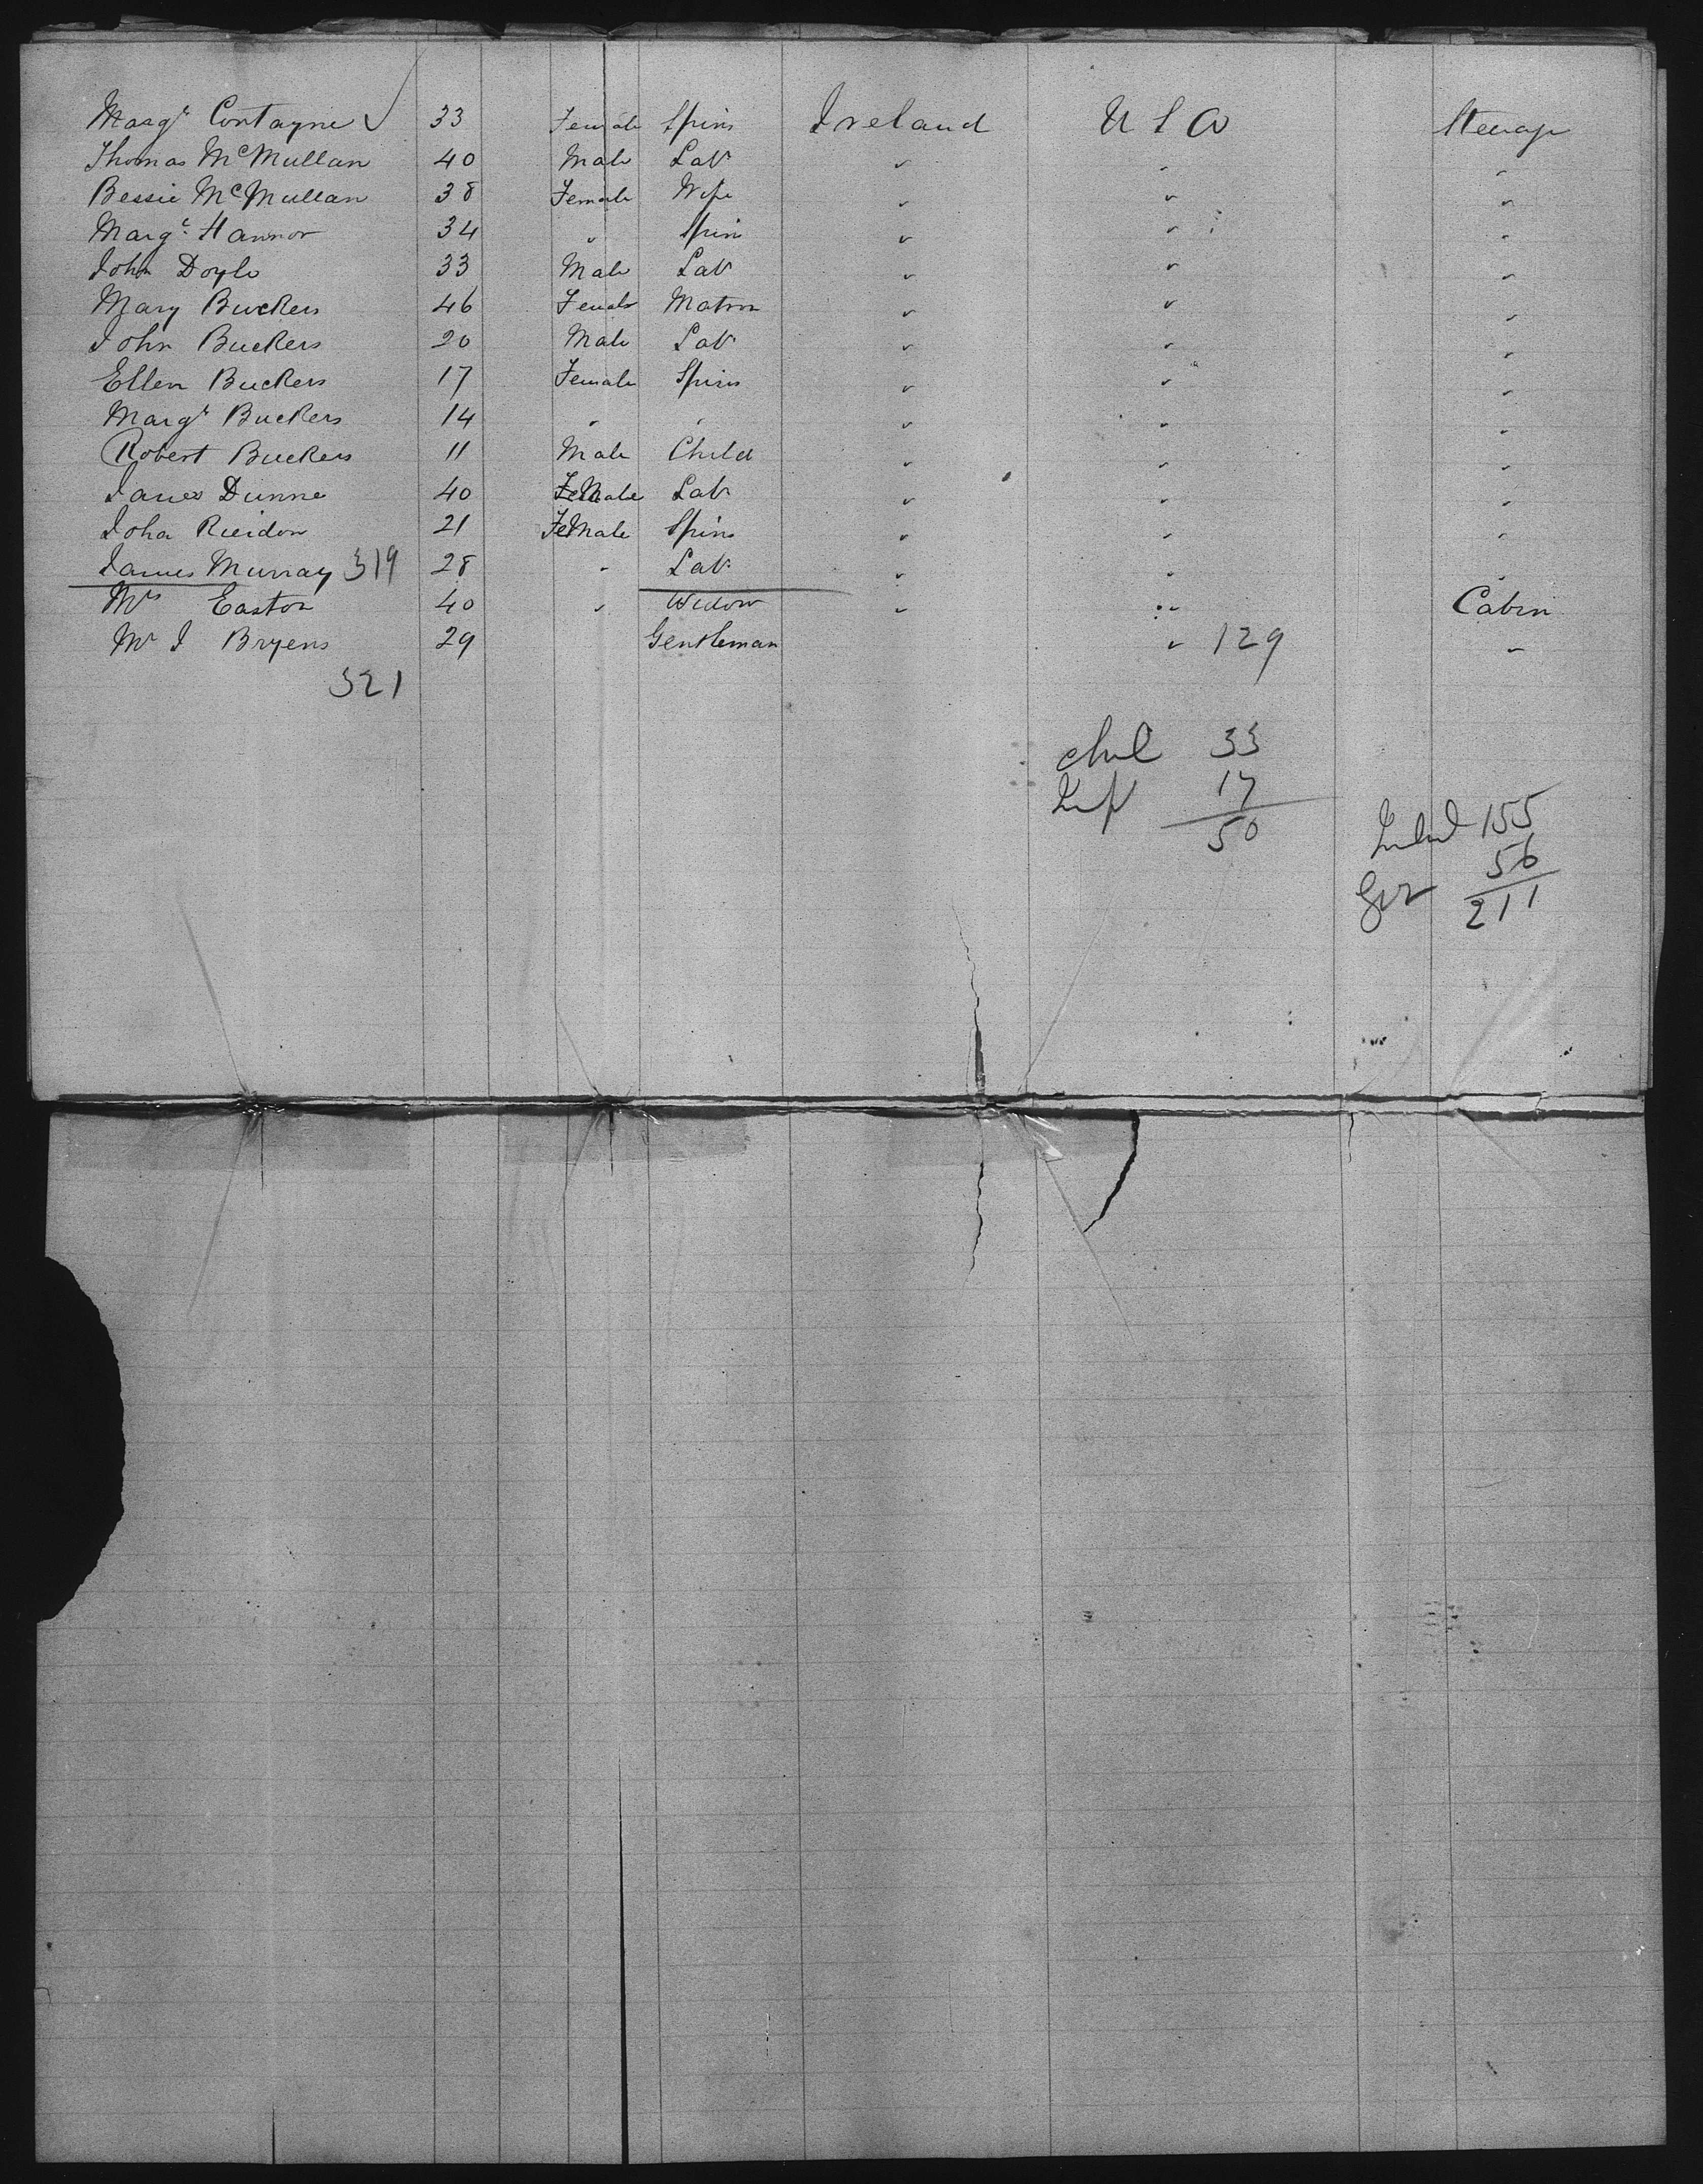 Margt Contayne ✓ 33 Female Spins Ireland U S A Steerage
Thomas McMullan 40 Male Lab " " "
Bessie McMullan 38 Female Wife " " "
Margt Hannor 34 " Spin " " "
John Doyle 33 Male Lab " " "
Mary Buckers 46 Female Matron " " "
John Buckers 20 Male Lab " " "
Ellen Buckers 17 Female Spins " " "
Margt Buckers 14 " " " " "
Robert Buckers 11 Male Child " " "
James Dunne 40 Male Lab " " "
Female Spins " " "
James Murray 319 28 " Lab " " "
Mrs Easton 40 " Widow " " Cabin
Mr J Bryens 29 Gentleman " 129 "
321
chil 33
Inf 17
50
Irelnd 155
56
211